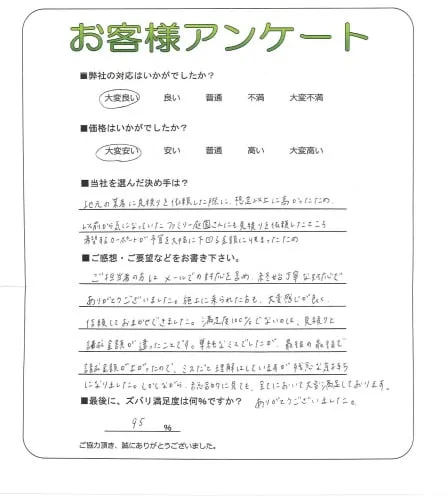 お客様アンケート
■弊社の対応はいかがでしたか？
大変良い 良い 普通 不満 大変不満
■価格はいかがでしたか？
大変安い 安い 普通 高い 大変高い
■当社を選んだ決め手は？
地元の業者に見積りを依頼した際に、想定以上に高かったため、
以前から気になっていたファミリー庭園さんにも見積りを依頼したところ
希望するカーポートが予算を大幅に下回る金額に収まったため
■ご感想・ご要望などをお書き下さい。
ご担当者の方は メールでの対応も含め、終始丁寧な対応で
ありがとうございました。施工に来られた方も、大変感じが良く、
信頼しておまかせできました。満足度100%でないのは、見積りと
請求金額が違ったことです。単純なミスでしたが、最後の最後で
請求金額が上がったので、ミスだと理解はしていますが 残念な気持ち
になりました。しかしながら、総合的に見ても、全てにおいて大変満足しております。
ありがとうございました。
■最後に、ズバリ満足度は何％ですか？
95 ％
ご協力頂き、誠にありがとうございました。